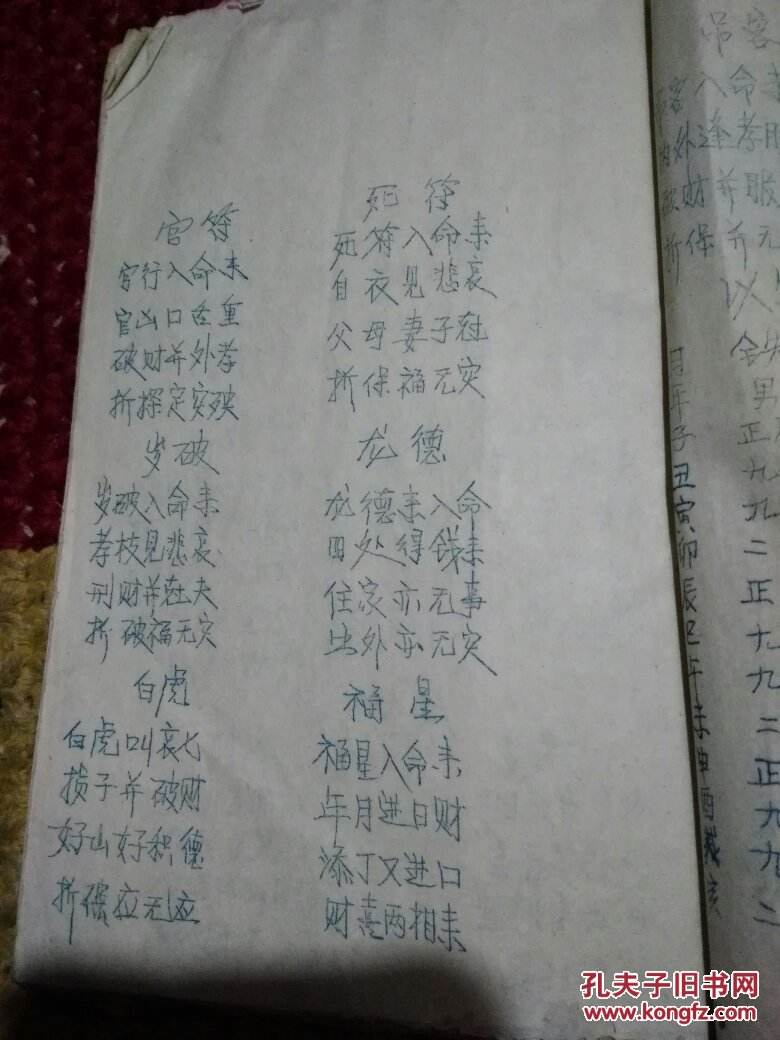 官符
官行入命来
官山口舌重
破财并外孝
折探定灾殃
岁破
岁破入命来
孝枝见悲哀
刑财并在夫
折破福无灾
白虎
白虎叫哀七
损子并破财
好山好积德
折保应无应
死符
死符入命来
自衣见悲哀
父母妻子在
折保福无灾
龙德
龙德来入命
四处得钱来
住家亦无事
出外亦无灾
福星
福星入命来
年月进日财
添丁又进口
财喜两相来
吊客
客入命来
外逢孝服
破财并服
折保并无
以
男
正
九
九
二
正
十
九
二
正
九
九
二
月年子丑寅卯辰巳午未申酉戌亥
孔夫子旧书网
www.kongfz.com